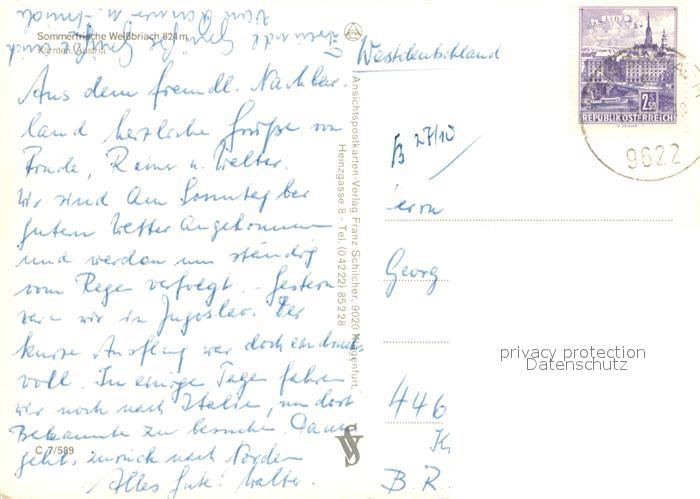 Sommerfrische Weißbriach 824 m
Kärnten, Austria
Aus dem freundl. Nachbar-
land herzliche Grüße von
Frude, Rainer u. Walter.
Wir sind Am Sonntag bei
gutem Wetter angekommen
und werden nun ständig
vom Regen verfolgt. Gestern
waren wir in Jugoslav. Der
kurze Ausflug war doch eindrucks
voll. In einige Tagen fahren
wir noch nach Italien, um dort
Bekannte zu besuchen. Dann
geht's zurück nach Norden
Alles Gute! Walter.
C 7/589
Ansichtspostkarten-Verlag Franz Schilcher, 9020 Klagenfurt,
Heinzgasse 8 - Tel. (04222) 85228
Westdeutschland
LINZ
2.50
REPUBLIK ÖSTERREICH
9622
27/10
Herrn
Georg
446
B R
privacy protection
Datenschutz